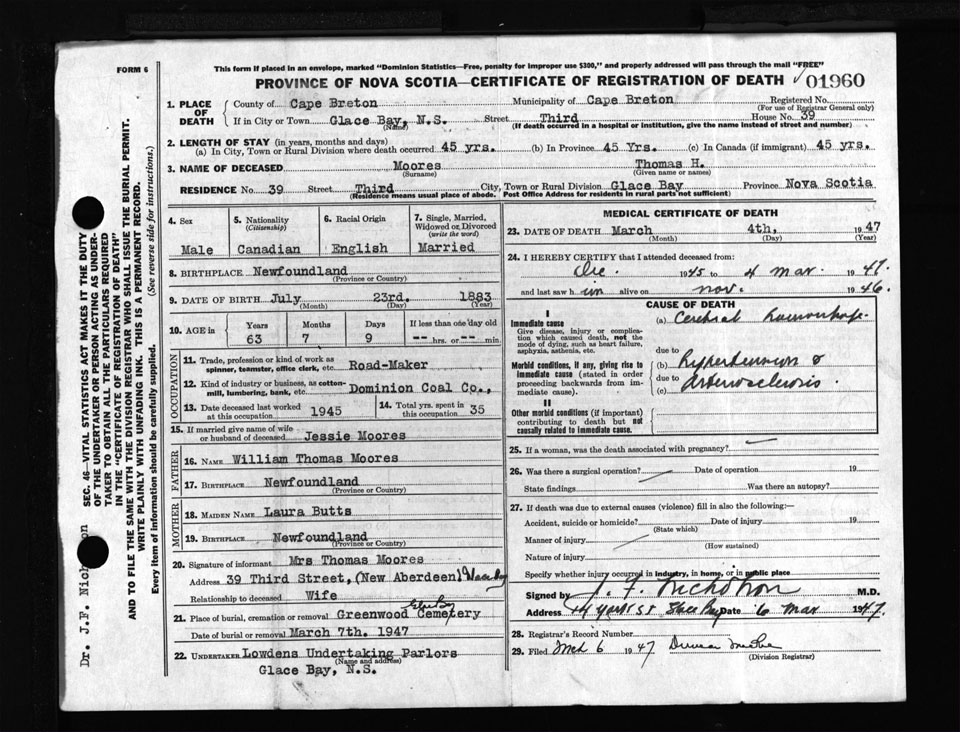 FORM 6
This form if placed in an envelope, marked "Dominion Statistics—Free, penalty for improper use $300," and properly addressed will pass through the mail "FREE"
PROVINCE OF NOVA SCOTIA—CERTIFICATE OF REGISTRATION OF DEATH 01960
1. PLACE OF DEATH
County of Cape Breton Municipality of Cape Breton Registered No.
(For use of Registrar General only)
If in City or Town Glace Bay, N.S. Street Third House No. 39
(Name) (If death occurred in a hospital or institution, give the name instead of street and number)
2. LENGTH OF STAY (in years, months and days)
(a) In City, Town or Rural Division where death occurred 45 yrs. (b) In Province 45 Yrs. (c) In Canada (if immigrant) 45 yrs.
3. NAME OF DECEASED Moores Thomas H.
(Surname) (Given name or names)
RESIDENCE No. 39 Street Third City, Town or Rural Division Glace Bay Province Nova Scotia
(Residence means usual place of abode. Post Office Address for residents in rural parts not sufficient)
4. Sex
Male
5. Nationality
(Citizenship)
Canadian
6. Racial Origin
English
7. Single, Married, Widowed or Divorced
(write the word)
Married
8. BIRTHPLACE Newfoundland
(Province or Country)
9. DATE OF BIRTH July 23rd. 1883
(Month) (Day) (Year)
10. AGE in
Years Months Days If less than one day old
63 7 9 -- hrs. or -- min.
OCCUPATION
11. Trade, profession or kind of work as spinner, teamster, office clerk, etc. Road-Maker
12. Kind of industry or business, as cotton-mill, lumbering, bank, etc. Dominion Coal Co.,
13. Date deceased last worked at this occupation 1945
14. Total yrs. spent in this occupation 35
15. If married give name of wife or husband of deceased Jessie Moores
FATHER
16. NAME William Thomas Moores
17. BIRTHPLACE Newfoundland
(Province or Country)
MOTHER
18. MAIDEN NAME Laura Butts
19. BIRTHPLACE Newfoundland
(Province or Country)
20. Signature of informant Mrs Thomas Moores
Address 39 Third Street, (New Aberdeen) Glace Bay
Relationship to deceased Wife
21. Place of burial, cremation or removal Greenwood Cemetery Glace Bay
Date of burial or removal March 7th. 1947
22. UNDERTAKER Lowdens Undertaking Parlors
(Name and address)
Glace Bay, N.S.
MEDICAL CERTIFICATE OF DEATH
23. DATE OF DEATH March 4th, 1947
(Month) (Day) (Year)
24. I HEREBY CERTIFY that I attended deceased from:
Dec. 1945 to 4 Mar. 1947.
and last saw h im alive on Nov. 1946.
CAUSE OF DEATH
I
Immediate cause
Give disease, injury or complication which caused death, not the mode of dying, such as heart failure, asphyxia, asthenia, etc.
(a) Cerebral Haemorrhage
due to
Morbid conditions, if any, giving rise to immediate cause (stated in order proceeding backwards from immediate cause).
(b) Hypertension &
due to Arteriosclerosis.
(c)
II
Other morbid conditions (if important) contributing to death but not causally related to immediate cause.
25. If a woman, was the death associated with pregnancy?
26. Was there a surgical operation? Date of operation 19
State findings Was there an autopsy?
27. If death was due to external causes (violence) fill in also the following:—
Accident, suicide or homicide? Date of injury 19
(State which)
Manner of injury
(How sustained)
Nature of injury
Specify whether injury occurred in industry, in home, or in public place
Signed by J. F. Nicholson M.D.
Address Glace Bay Date 6 Mar 1947.
28. Registrar's Record Number
29. Filed Mch 6 1947
(Division Registrar)
SEC. 46—VITAL STATISTICS ACT MAKES IT THE DUTY
OF THE UNDERTAKER OR PERSON ACTING AS UNDER-
TAKER TO OBTAIN ALL THE PARTICULARS REQUIRED
IN THE "CERTIFICATE OF REGISTRATION OF DEATH"
AND TO FILE THE SAME WITH THE DIVISION REGISTRAR WHO SHALL ISSUE THE BURIAL PERMIT.
WRITE PLAINLY WITH UNFADING INK. THIS IS A PERMANENT RECORD.
Every item of information should be carefully supplied. (See reverse side for instructions.)
Dr. J.F.